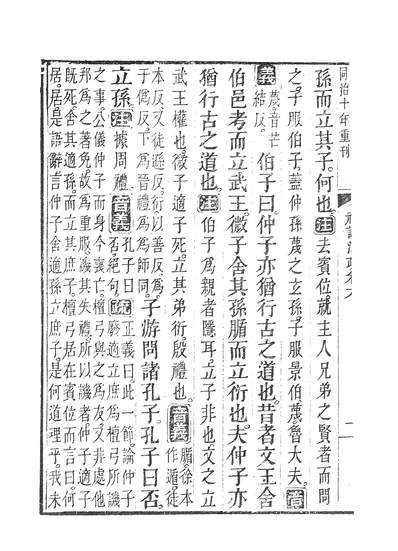 同治十年重刊
孫而立其子何也注去賓位就主人兄弟之賢者而問
之子服伯子蓋仲孫蔑之玄孫子服景伯蔑魯大夫音
義蔑音芒結反伯子曰仲子亦猶行古之道也昔者文王舍
伯邑考而立武王微子舍其孫腯而立衍也夫仲子亦
猶行古之道也注伯子爲親者隱耳立子非也文之立
武王權也微子適子死立其弟衍殷禮也音義腯徐本作遁徒
本反又徒遜反衍以善反爲于僞反下爲晉禮爲爲師同子游問諸孔子孔子曰否
立孫注據周禮音義孔子曰否絕句疏正義曰此一節論仲子廢適立庶爲檀弓所譏
之事公儀仲子而身今喪亡檀弓與之爲友又非處他
邦爲之著免故爲重服譏其失禮所以譏者仲子適子
既死舍其適孫而立其庶子檀弓居在賓位而言曰何
居居是語辭言仲子舍適孫立庶子是何道理乎我未